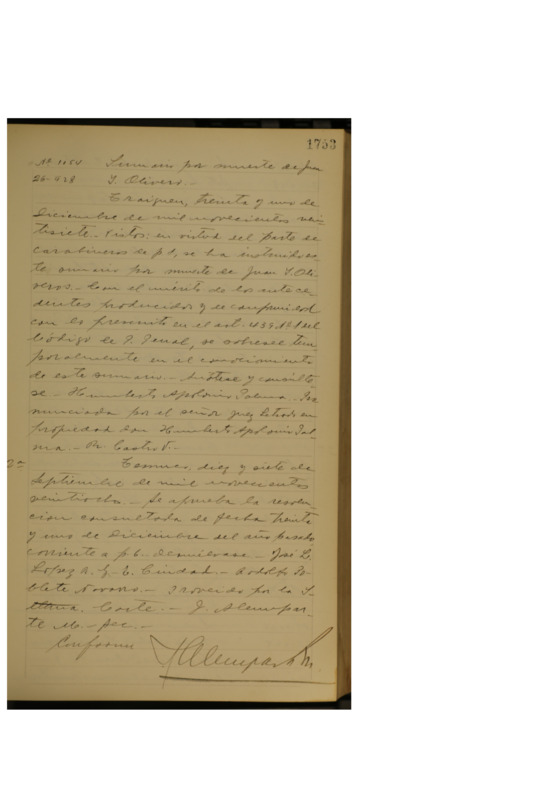 1753
Nº 1154 Sumario por muerte de Juan
26-428 S. Olivero.-
Traiguen, treinta y uno de
Diciembre de mil novecientos vein-
tisiete. Vistos: en virtud del parte de
carabineros de f. 1, se ha instruido es-
te sumario por muerte de Juan S. Oli-
veros.- Con el mérito de los antece-
dentes producidos y de conformidad
con lo prescrito en el art. 439 Nº 1 del
Código de P. Penal, se sobresee tem
poralmente en el conocimiento
de este sumario.- Anótese y consúlte-
se.- Humberto Apolonio Palma. Pro
nunciada por el señor juez letrado en
propiedad don Humberto Apolonio Pal-
ma.- R. Castro
2ª Temuco, diez y siete de
Septiembre de mil novecientos
veintiocho.- Se aprueba la resolu-
cion consultada de fecha treinta
y uno de diciembre del año pasado
corriente a f. 6. Devuélvase.- José L.
López A. G. E. Ciudad.- Rodolfo Po-
blete Navarro.- Proveido por la I-
Corte.- J. Alempar-
te M.- Sec.-
Conforme
J Alemparte M.